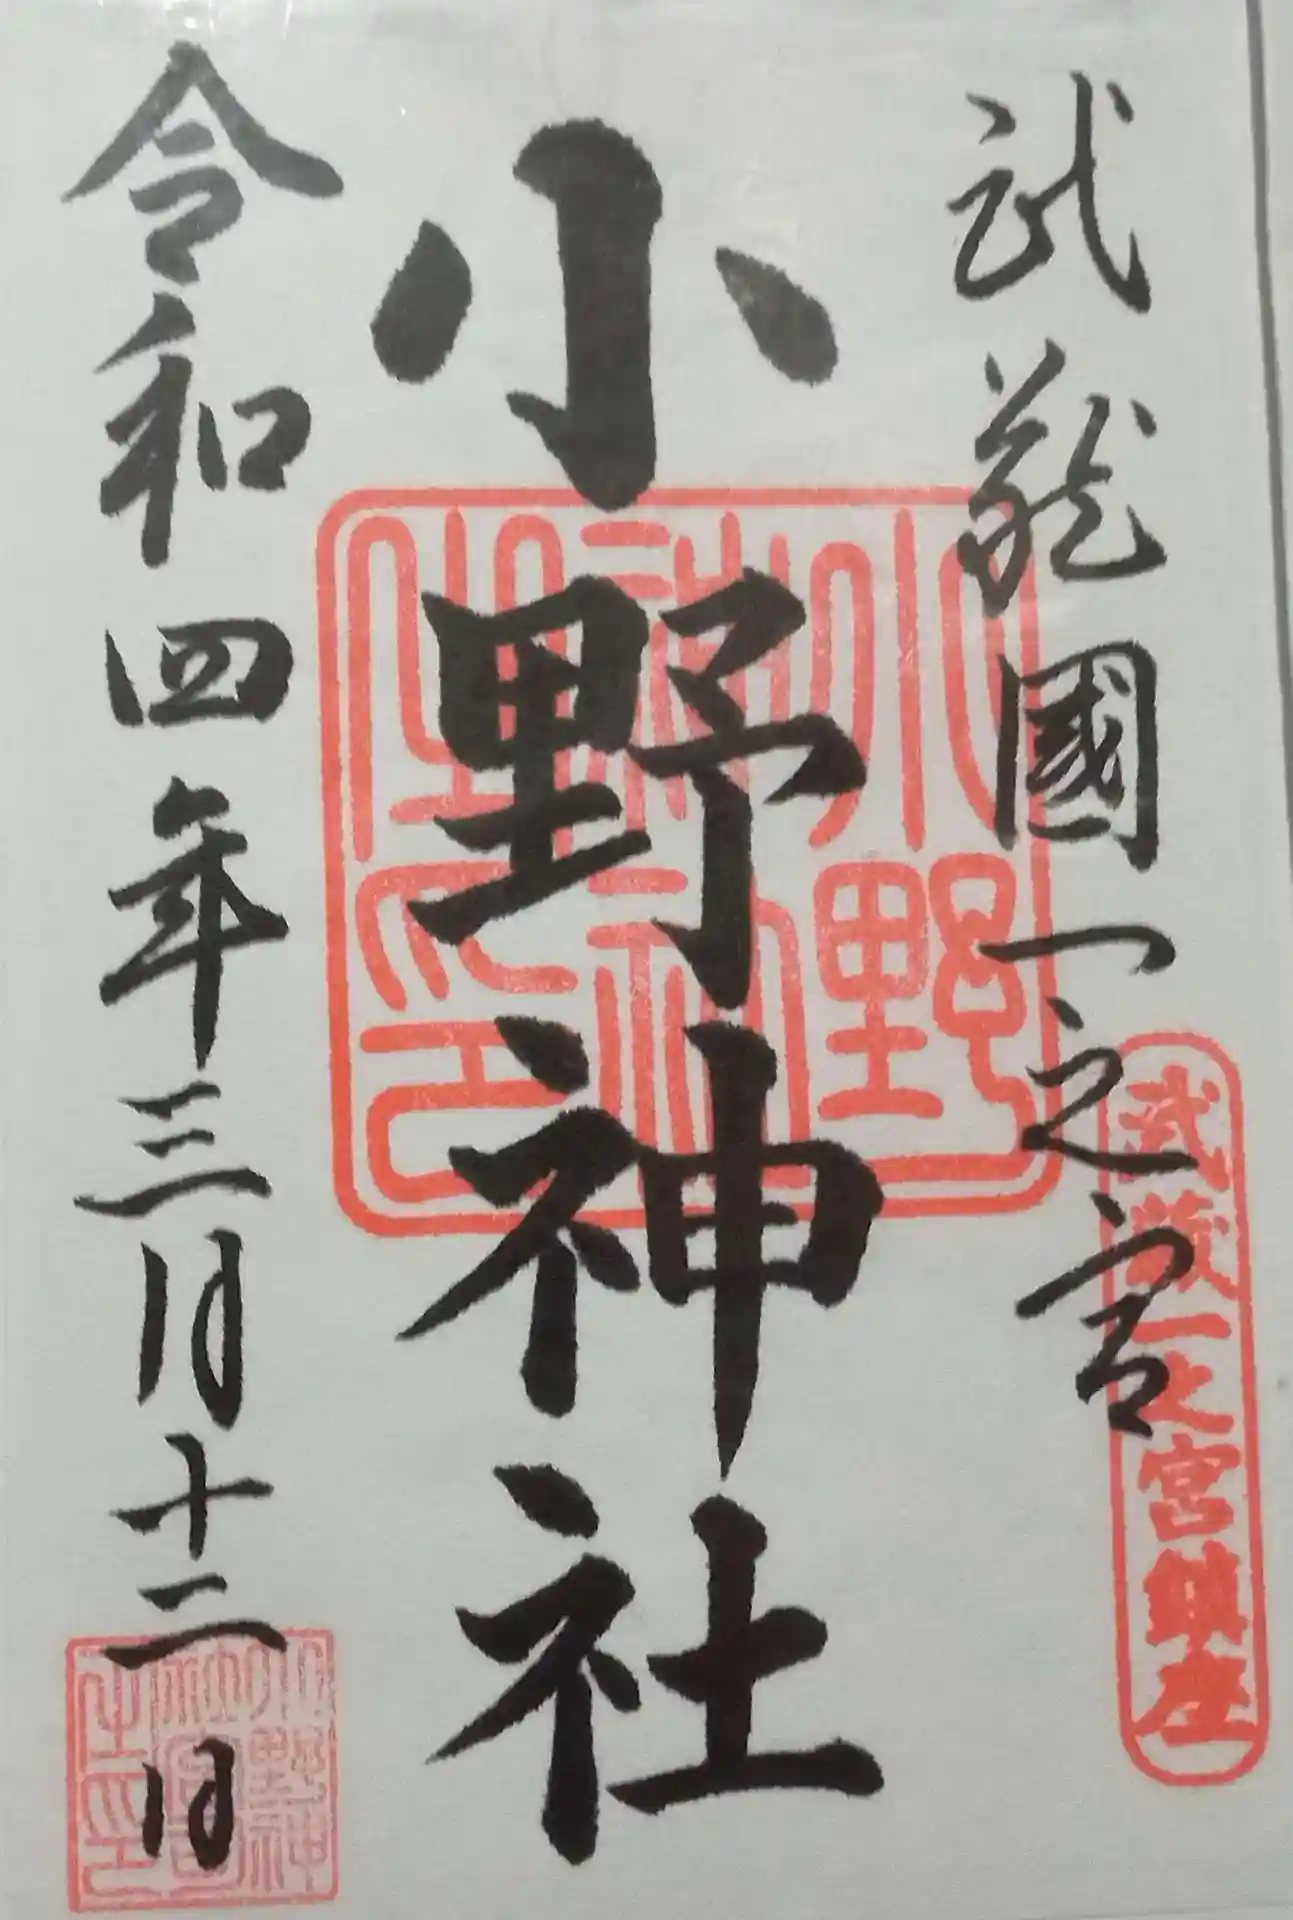 武蔵國一之宮
武蔵一之宮鎮座
小野神社
小野神社之印
令和四年三月十二日
小野神社宮司之印